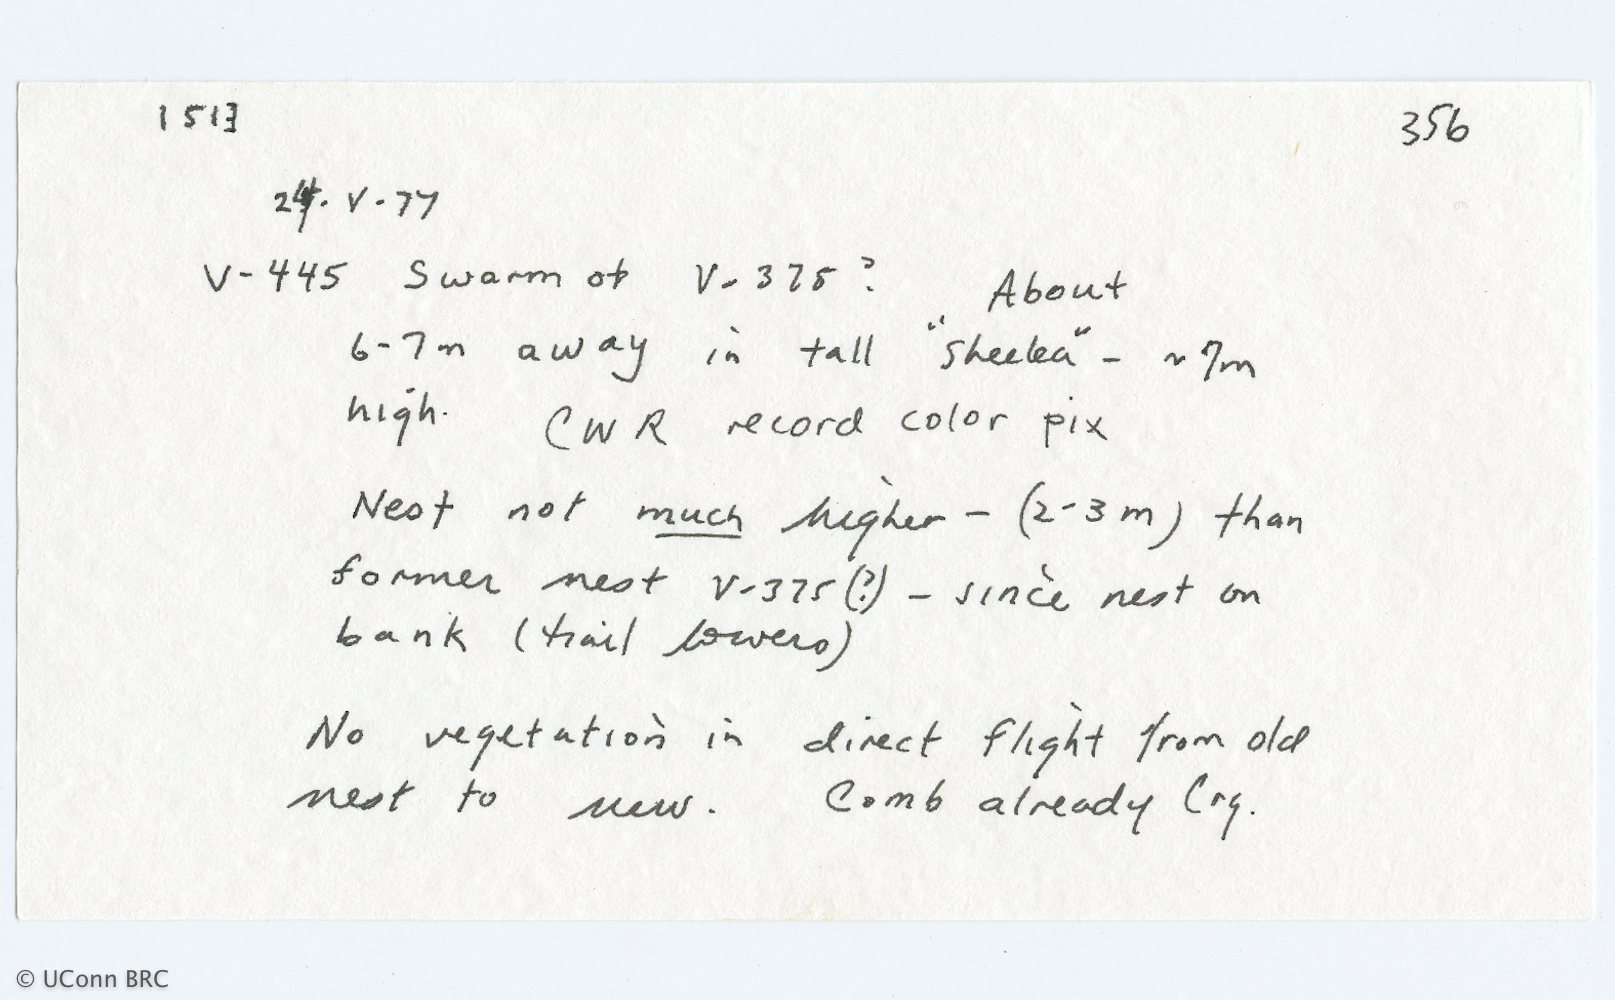 1513
356
24. V. 77
V-445 Swarm of V-375? About
6-7m away in tall "Sheelea" - ~7m
high. CWR record color pix
Nest not much higher - (2-3m) than
former nest V-375(?) - since nest on
bank (trail lowers)
No vegetation in direct flight from old
nest to new. Comb already Crg.
© UConn BRC